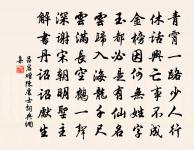 青霄一路少人行
休話興亡事不成
金榜因何無姓字
玉都必是有仙名
雲歸入海龍千尺
雲滿長空鶴一聲
深謝宋朝明聖主
解書丹詔詔先生
呂嵒贈陳處士詞典網
集